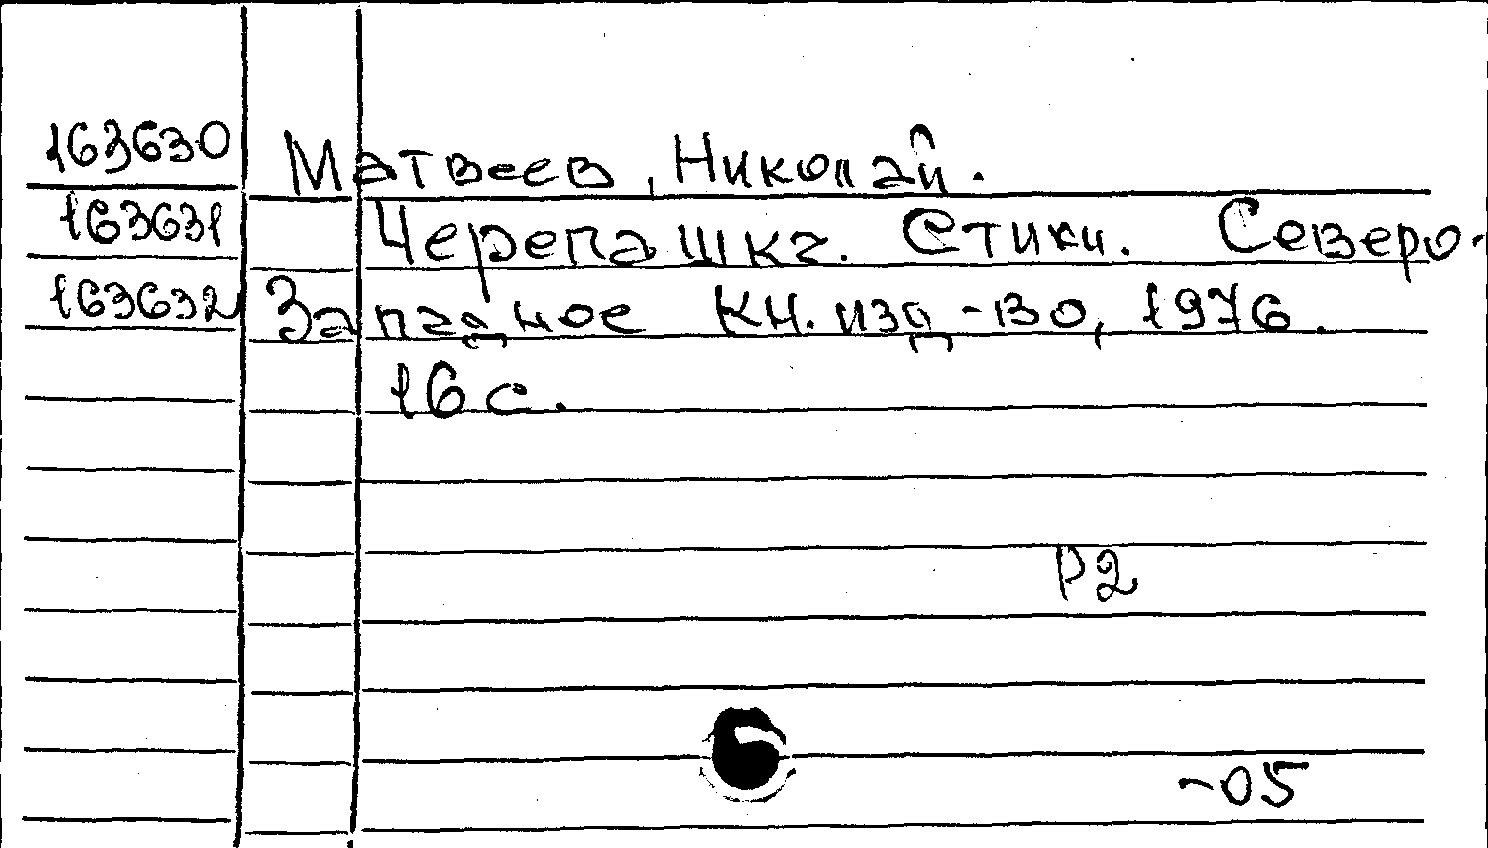 163630 Матвеев, Николай.
163631 Черепашка. Стихи. Северо-
163632 Западное кн. изд-во, 1976.
16 с.
Р2
-05